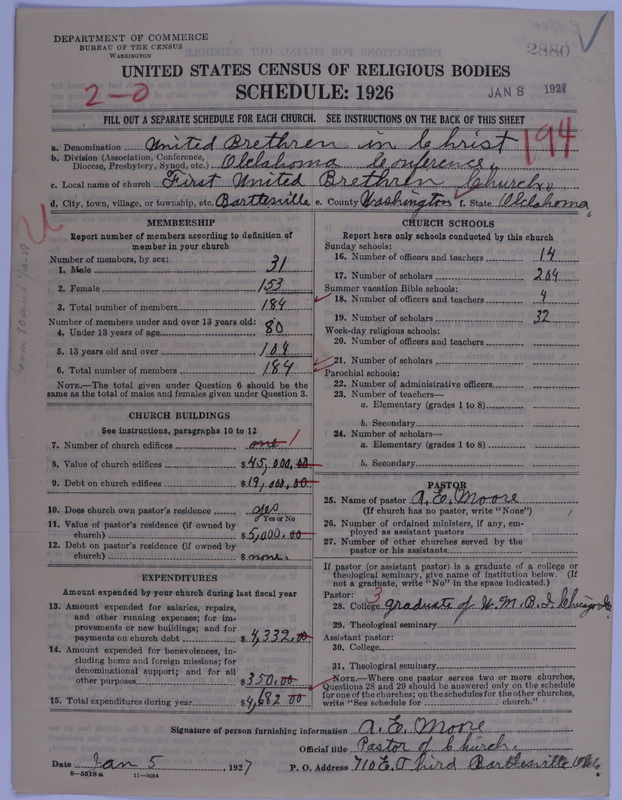 DEPARTMENT OF COMMERCE
BUREAU OF THE CENSUS
WASHINGTON
2880
UNITED STATES CENSUS OF RELIGIOUS BODIES
2-0
SCHEDULE: 1926
JAN 8 1927
FILL OUT A SEPARATE SCHEDULE FOR EACH CHURCH. SEE INSTRUCTIONS ON THE BACK OF THIS SHEET
194
a. Denomination United Brethren in Christ
b. Division (Association, Conference, Diocese, Presbytery, Synod, etc.) Oklahoma Conference,
c. Local name of church First United Brethren Church,
d. City, town, village, or township, etc. Bartlesville e. County Washington f. State Oklahoma,
MEMBERSHIP
Report number of members according to definition of
member in your church
Number of members, by sex:
1. Male 31
2. Female 153
3. Total number of members 184
Number of members under and over 13 years old:
4. Under 13 years of age 80
5. 13 years old and over 104
6. Total number of members 184
NOTE.—The total given under Question 6 should be the
same as the total of males and females given under Question 3.
CHURCH BUILDINGS
See instructions, paragraphs 10 to 12
7. Number of church edifices one 1
8. Value of church edifices $45,000.00
9. Debt on church edifices $19,000.00
10. Does church own pastor's residence yes
Yes or No
11. Value of pastor's residence (if owned by
church) $5,000.00
12. Debt on pastor's residence (if owned by
church) $none.
EXPENDITURES
Amount expended by your church during last fiscal year
13. Amount expended for salaries, repairs,
and other running expenses; for im-
provements or new buildings; and for
payments on church debt $4,332.00
14. Amount expended for benevolences, in-
cluding home and foreign missions; for
denominational support; and for all
other purposes $350.00
15. Total expenditures during year $4,682 00
CHURCH SCHOOLS
Report here only schools conducted by this church
Sunday schools:
16. Number of officers and teachers 14
17. Number of scholars 204
Summer vacation Bible schools:
18. Number of officers and teachers 4
19. Number of scholars 32
Week-day religious schools:
20. Number of officers and teachers
21. Number of scholars
Parochial schools:
22. Number of administrative officers
23. Number of teachers—
a. Elementary (grades 1 to 8)
b. Secondary
24. Number of scholars—
a. Elementary (grades 1 to 8)
b. Secondary
PASTOR
25. Name of pastor A. E. Moore
(If church has no pastor, write "None")
26. Number of ordained ministers, if any, em-
ployed as assistant pastors
27. Number of other churches served by the
pastor or his assistants
If pastor (or assistant pastor) is a graduate of a college or
theological seminary, give name of institution below. (If
not a graduate, write "No" in the space indicated.)
Pastor: 3
28. College graduate of
29. Theological seminary
Assistant pastor:
30. College
31. Theological seminary
NOTE.—Where one pastor serves two or more churches,
Questions 28 and 29 should be answered only on the schedule
for one of the churches; on the schedules for the other churches,
write "See schedule for church."
Signature of person furnishing information A. E. Moore
Official title Pastor of Church.
Date Jan 5, 1927 P. O. Address 710 E. Third Bartlesville Okla
8-5519a 11-9054